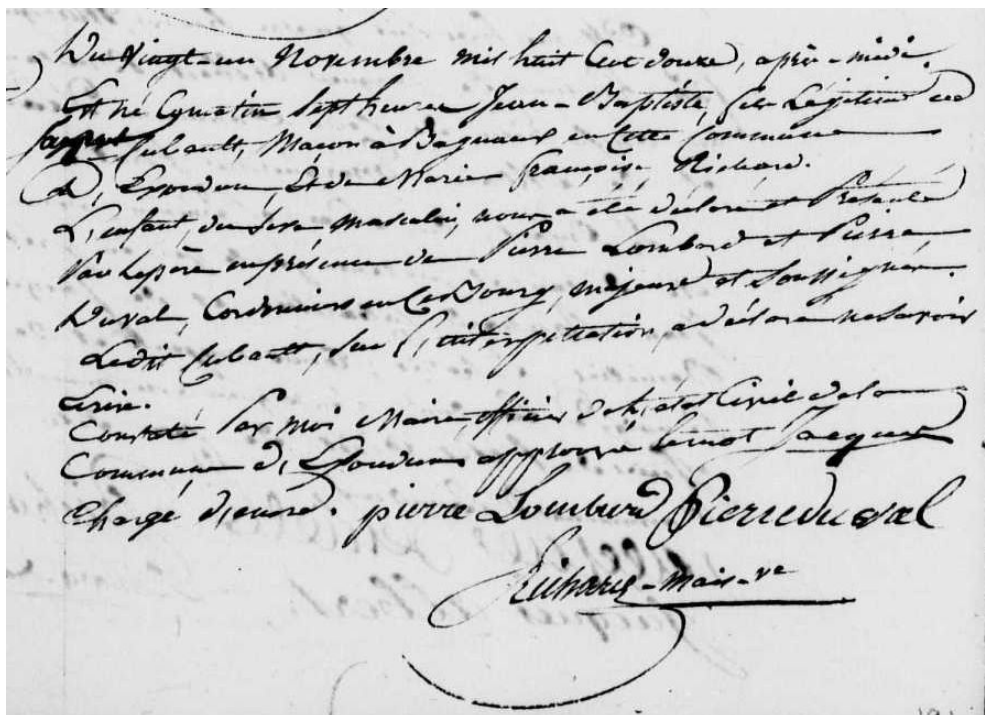 Du Vingt-un Novembre mil huit Cent douze, après-midi.
Est né Cematin Sept heures Jean-Baptiste, fils Légitime de
Jacques Maçon à Bagneux en Cette Commune
D, Et de Marie françoise Richard.
L'enfant, du Sexe masculin, nous a été déclaré et Présenté
Par Lepère en présence de Pierre Lombard et Pierre
Duval, Cordonniers en Ce Bourg, majeurs et Soussignés.
Ledit, Sur L'interpellation, a déclaré ne Savoir
Ecrire.
Constaté Par moi Maire, officier de L'état Civil de la
Commune D, approuvé Le mot Jacques
Chargé d'encre. pierre Lombard Pierre du val
Richard - Maire